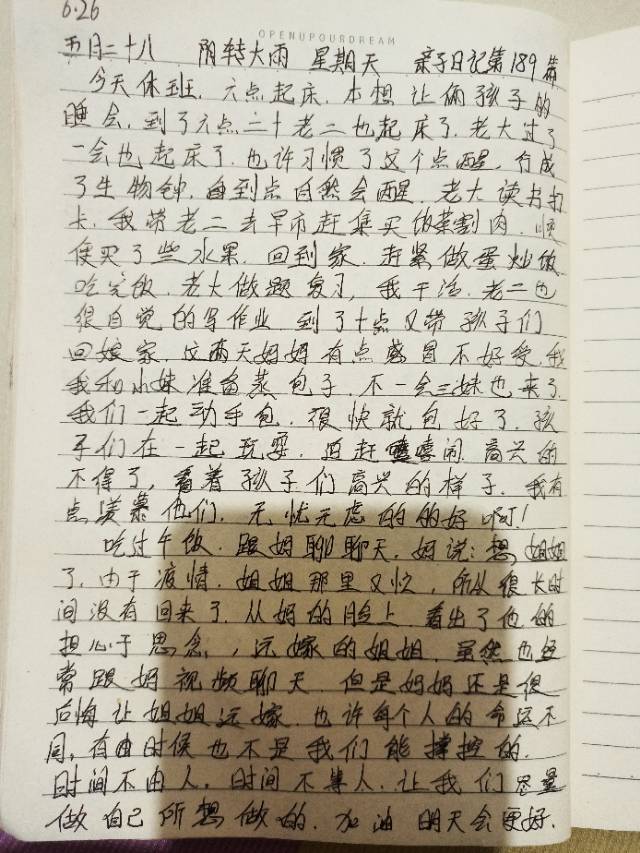 6.26
OPENUPOURDREAM
五月二十八 阴转大雨 星期天 亲子日记第189篇
今天休班.六点起床.本想让俩孩子的
睡会.到了六点二十老二也起床了.老大过了
一会也起床了.也许习惯了这个点醒.合成
了生物钟.自到点自然会醒.老大读书打
卡.我带老二去早市赶集买饭菜割肉.顺
侯买了些水果.回到家.赶紧做蛋炒饭
吃完饭.老大做题复习,我干活.老二也
很自觉的写作业.到了十点又带孩子们
回娘家.这两天妈妈有点感冒不好受.我
我和小妹准备蒸包子.不一会三妹也来了.
我们一起动手包.很快就包好了.孩
子们在一起玩耍.追赶嘻嘻闹.高兴的
不得了,看着孩子们高兴的样子.我有
点羡慕他们.无忧无虑的的好啊!
吃过午饭.跟妈聊聊天.妈说:想姐姐
了.由于疫情.姐姐那里又忙,所以很长时
间没有回来了.从妈的脸上.看出了他的
担心于思念,远嫁的姐姐.虽然也经
常跟妈视频聊天.但是妈妈还是很
后悔让姐姐远嫁.也许每个人的命运不
同,有时候也不是我们能撑控的.
时间不由人.时间不等人.让我们尽量
做自己所想做的.加油 明天会更好.